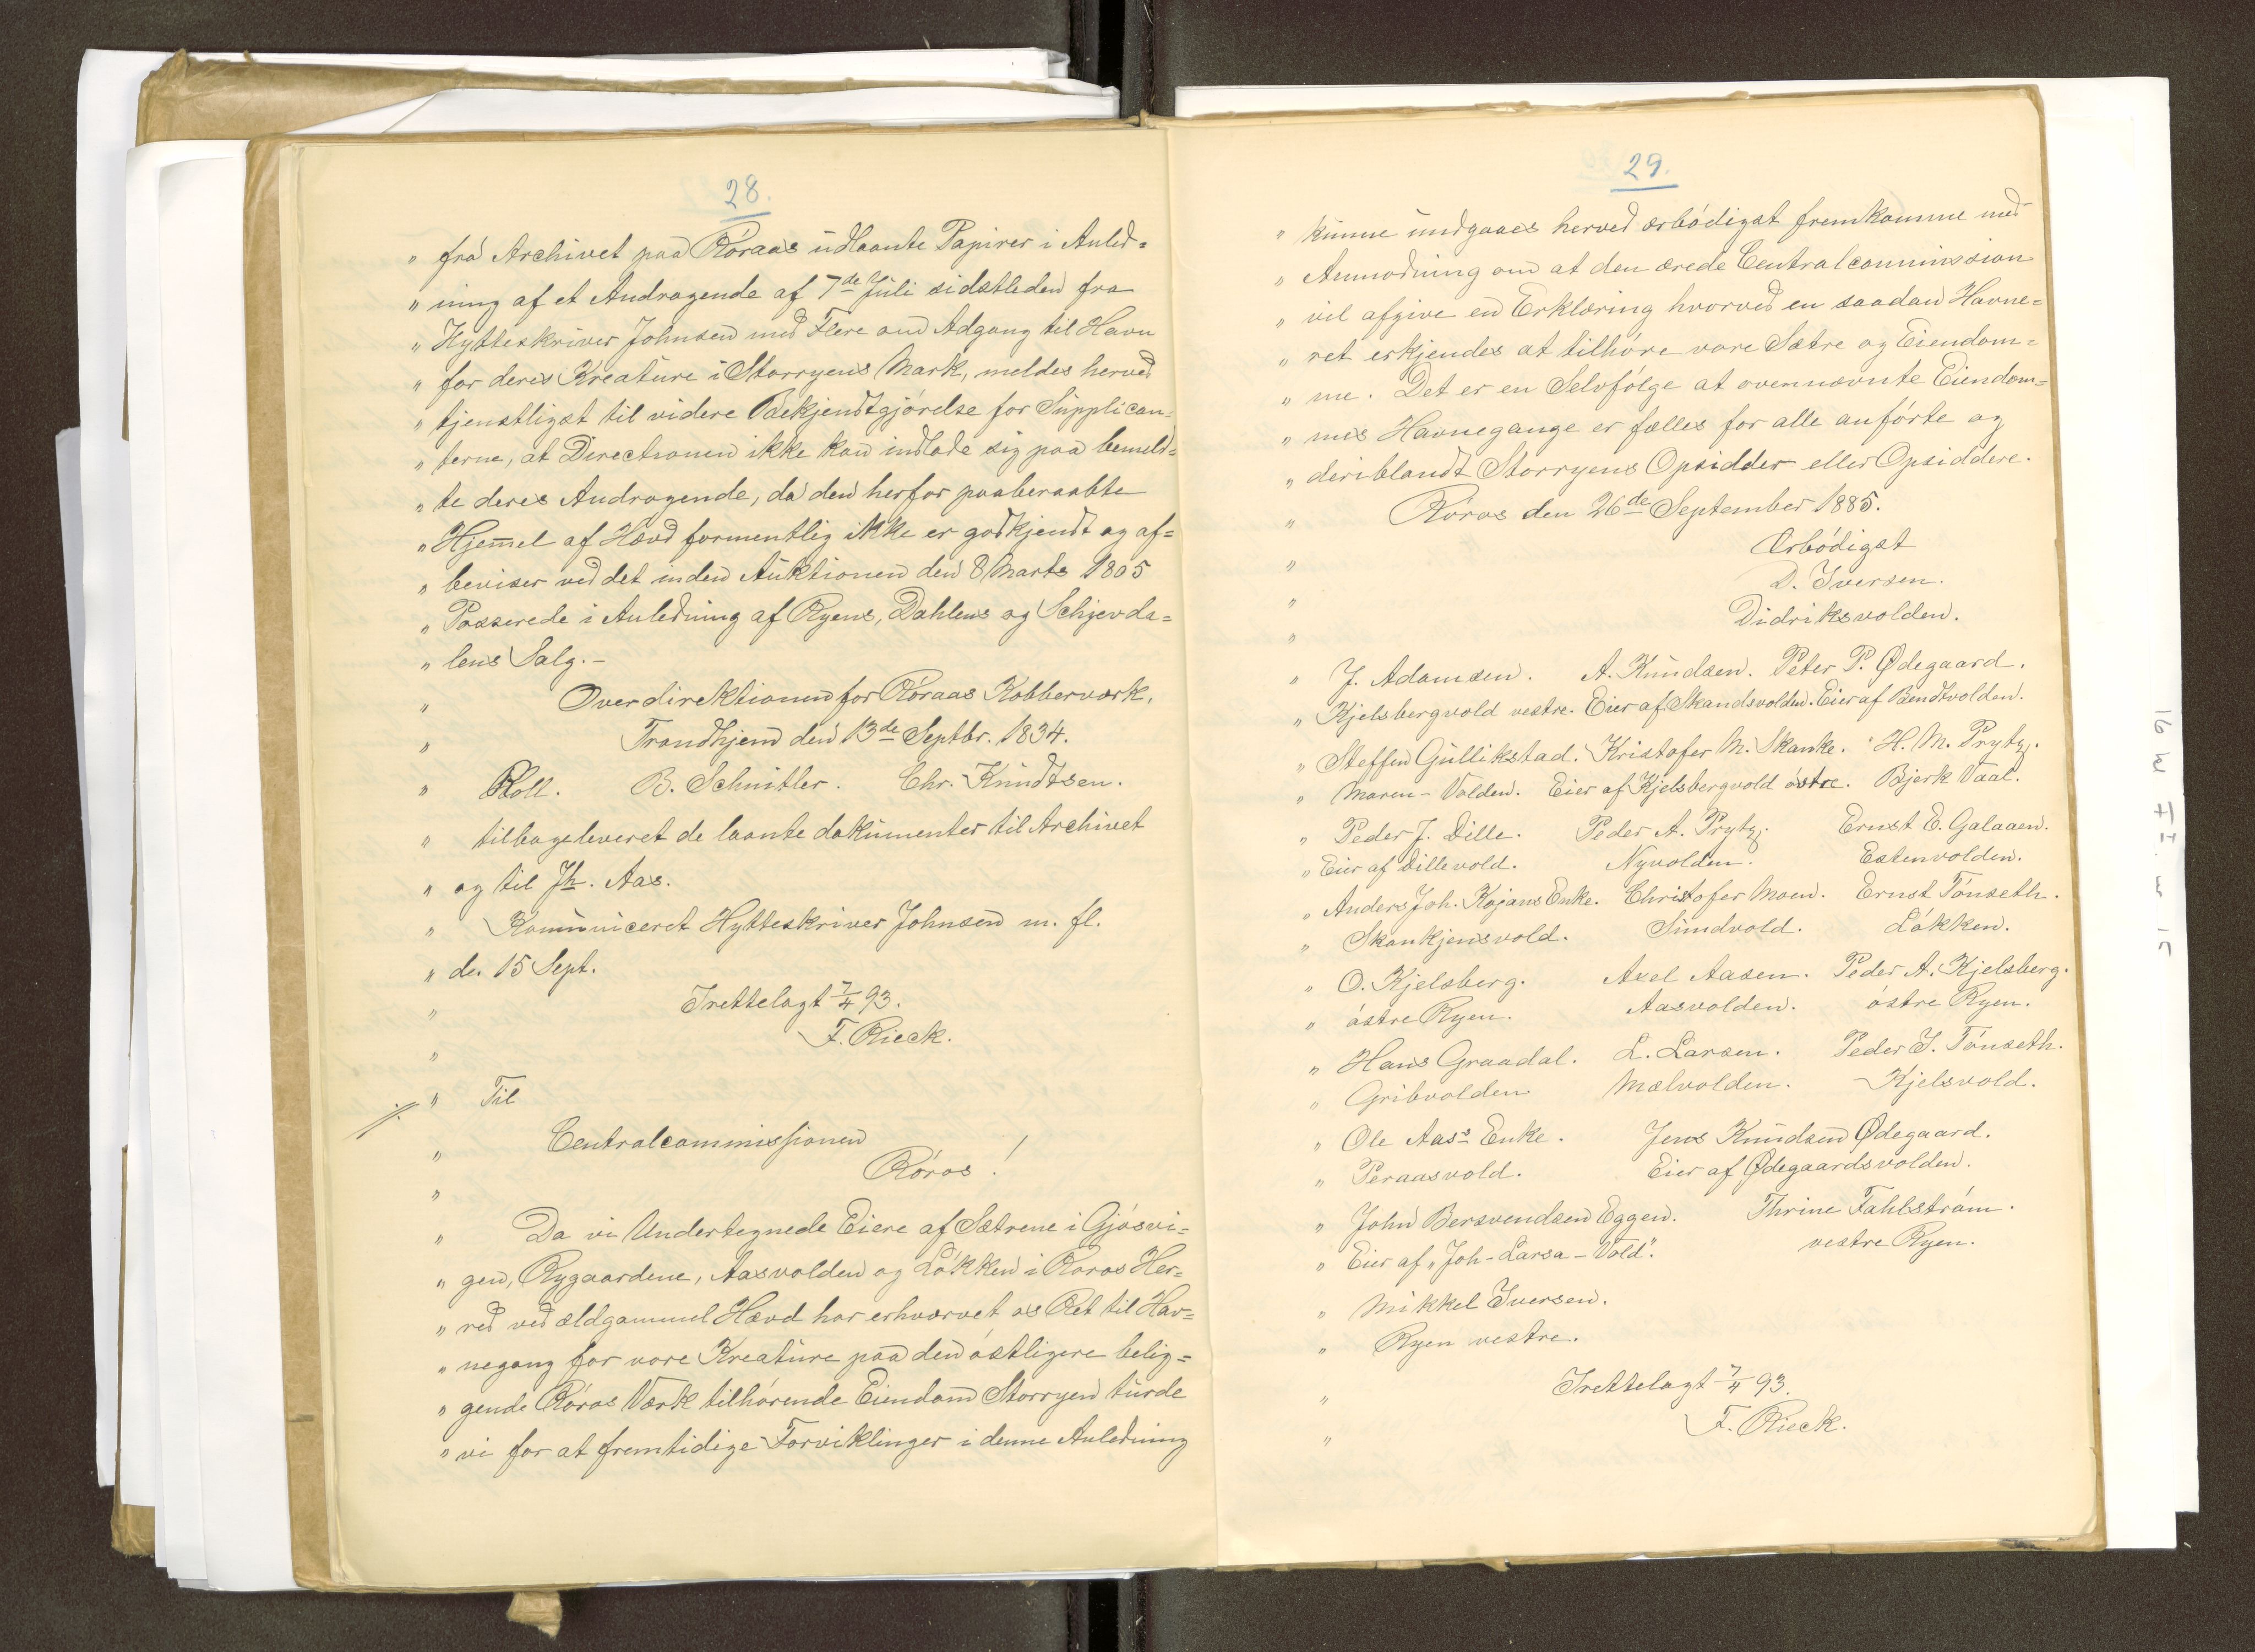 28.
" fra Archivet paa Röraas udlaante Papirer i Anled=
" ning af et Andragende af 7de Juli sidstleden fra
" Hytteskriver Johnsen med Flere om Adgang til Havn
" for deres Kreature i Storryens Mark, meldes herved
" tjenstligst til videre Bekjendtgjörelse for Supplican=
" terne, at Directionen ikke kan indlade sig paa bemeld=
" te deres Andragende, da den herfor paaberaabte
" Hjemmel af Hævd formentlig ikke er godkjendt og af=
" beviser ved det inden Auktionen den 8 Marts 1805
" Passerede i Anledning af Ryens, Dahlens og Schjevda=
" lens Salg.-
" Overdirektionen for Röraas Kobberværk,
" Trondhjem den 13de Septbr. 1834.
" Roll. B. Schnitler. Chr. Knudtsen.
" tilbageleveret de laante dokumenter til Archivet
" og til Jh. Aas.
" Kommuniceret Hytteskriver Johnsen m. fl.
" de. 15 Sept.
" Irettelagt 7/4 93.
" F. Rieck.
" Til
" Centralcommissionen
" Röros!
" Da vi Undertegnede Eiere af Sætrene i Gjösvi=
" gen, Rygaardene, Aasvolden og Lökken i Röros Her=
" red ved ældgammel Hævd har erhvervet os Ret til Hav=
" negang for vore Kreature paa den östligere belig=
" gende Röros Værk tilhörende Eiendom Storryen turde
" vi for at fremtidige Forviklinger i denne Anledning
29.
" kunne undgaaes herved ærbödigst fremkomme med
" Anmodning om at den ærede Centralcommission
" vil afgive en Erklæring hvorved en saadan Havne=
" ret erkjendes at tilhöre vore Sætre og Eiendom=
" me. Det er en Selvfölge at ovennævnte Eiendom=
" mes Havnegange er fælles for alle anförte og
" deriblandt Storryens Opsidder eller Opsiddere.
" Röros den 26de September 1885.
" Ærbödigst
" D. Iversen.
" Didriksvolden.
" J. Adamsen. A. Knudsen. Peter P. Ødegaard.
" Kjelsbergvold vestre. Eier af Skandsvolden. Eier af Bendtvolden.
" Steffen Gullikstad. Kristofer M. Skanke. H. M. Prytz.
" Maren-Volden. Eier af Kjelsbergvold östre. Bjerk Vaal.
" Peder J. Dille. Peder A. Prytz. Ernst E. Galaaen.
" Eier af Dillevold. Nyvolden. Estenvolden.
" Anders Joh. Kojans Enke. Christofer Moen. Ernst Tönseth.
" Skankjensvold. Sundvold. Lökken.
" O. Kjelsberg. Axel Aasen. Peder A. Kjelsberg.
" östre Ryen. Aasvolden. östre Ryen.
" Hans Graadal. L. Larsen. Peder J. Tönseth.
" Gribvolden Mælvolden. Kjelsvold.
" Ole Aas's Enke. Jens Knudsen Ødegaard.
" Peraasvold. Eier af Ødegaardsvolden.
" John Bersvendsen Eggen. Thrine Fahlström.
" Eier af "Joh-Larsa-Vold". vestre Ryen.
" Mikkel Iversen.
" Ryen vestre.
" Irettelagt 7/4 93.
" F. Rieck.